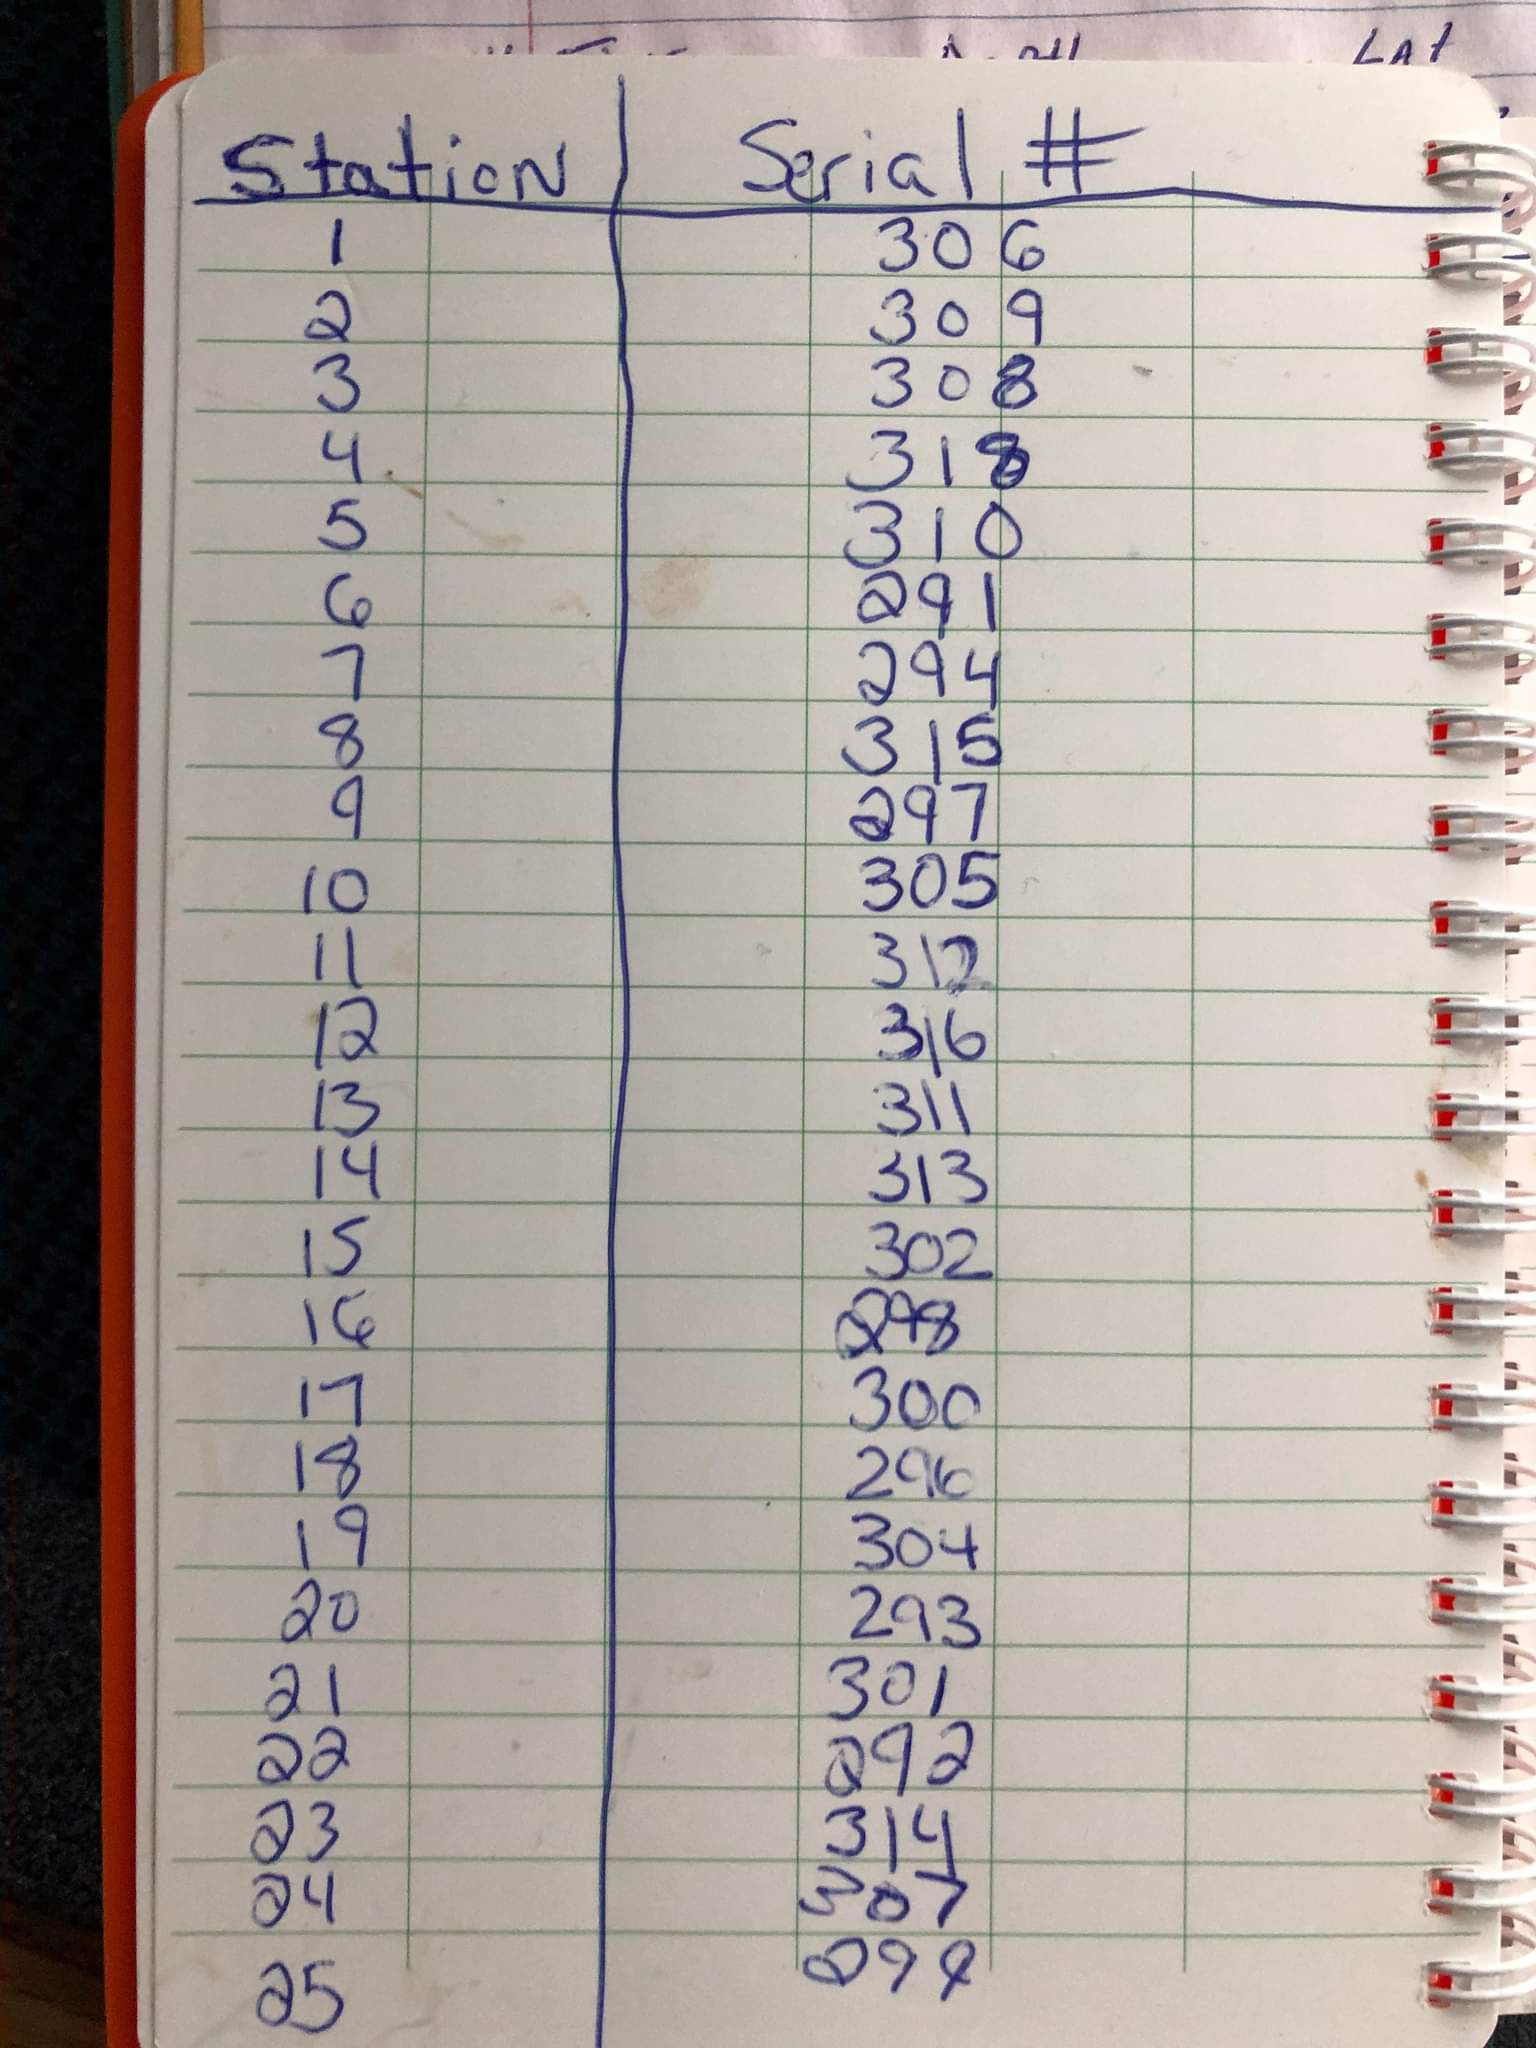 Lat
Station Serial #
1 306
2 309
3 308
4 318
5 310
6 291
7 294
8 315
9 297
10 305
11 312
12 316
13 311
14 313
15 302
16 298
17 300
18 296
19 304
20 293
21 301
22 292
23 314
24 307
25 299